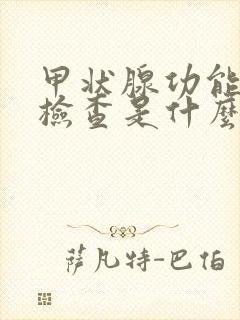 甲状腺功能
檢查是什麼
萨凡特-巴伯